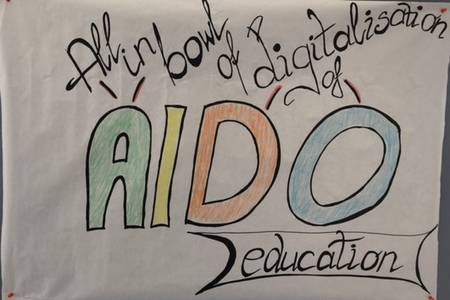 All in bowl of digitalisation of
AIDO
education